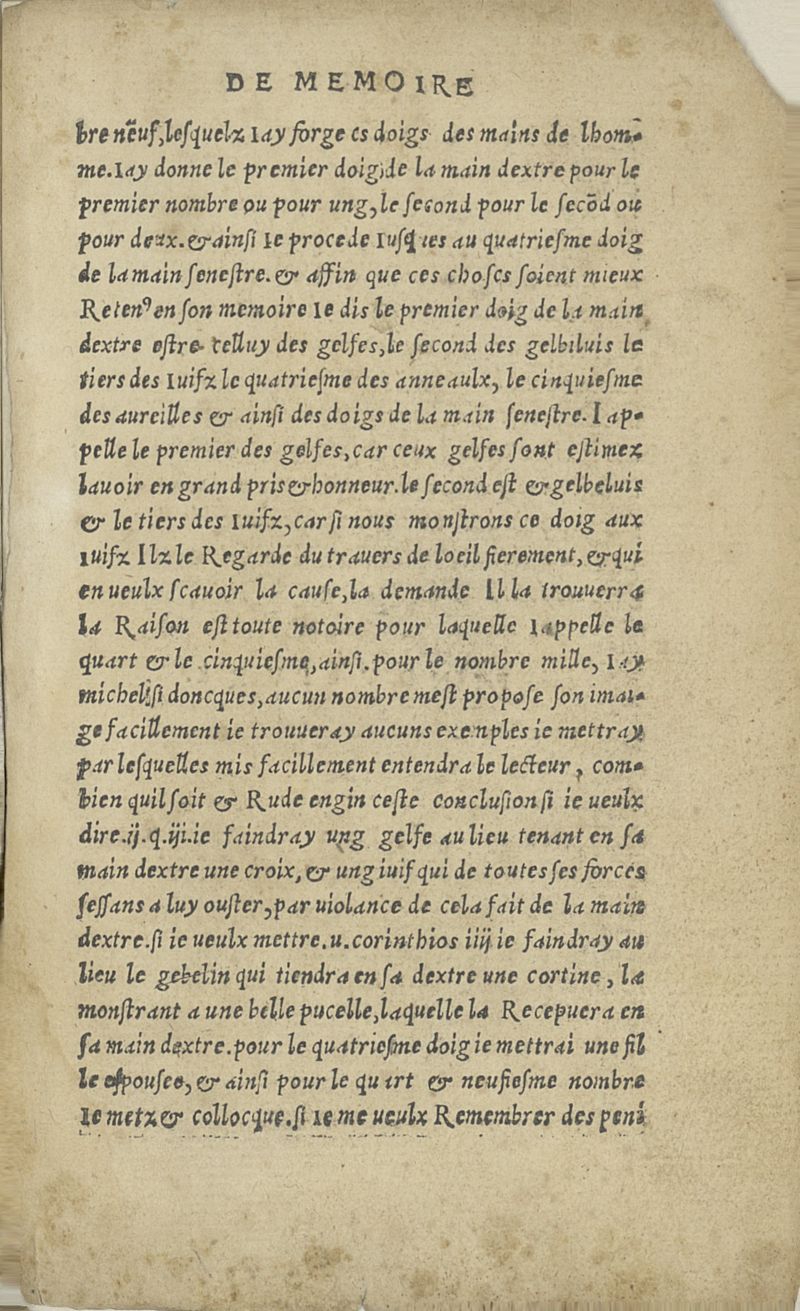 DE MEMOIRE
bre neuf, lesquelz Iay forge es doigs des mains de lhom-
me. Iay donne le premier doig de la main dextre pour le
premier nombre ou pour ung, le second pour le secõd ou
pour deux. & ainsi Ie procede Iusques au quatriesme doig
de la main senestre. & affin que ces choses soient mieux
Retenꝰ en son memoire Ie dis le premier doig de la main
dextre estre celluy des gelfes, le second des gelbiluis le
tiers des Iuifz le quatriesme des anneaulx, le cinquiesme
des aureilles & ainsi des doigs de la main senestre. I ap-
pelle le premier des gelfes, car ceux gelfes sont estimez
lavoir en grand pris & honneur. le second est & gelbeluis
& le tiers des Iuifz, car si nous monstrons ce doig aux
Iuifz Ilz le Regarde du travers de loeil fierement, & qui
en veulx scavoir la cause, la demande Il la trouverra
la Raison est toute notoire pour laquelle Iappelle le
quart & le cinquiesme, ainsi. pour le nombre mille, Iay
michel. si doncques, aucun nombre mest propose son imai-
ge facillement ie trouveray aucuns exemples ie mettray
par lesquelles mis facillement entendra le lecteur, com-
bien quil soit & Rude engin ceste conclusion si ie veulx
dire .ij. q. iij. ie faindray ung gelfe au lieu tenant en sa
main dextre une croix, & ung iuif qui de toutes ses forces
sessans a luy ouster, par violance de cela fait de la main
dextre. si ie veulx mettre. u. corinthios iiij ie faindray au
lieu le gebelin qui tiendra en sa dextre une cortine, la
monstrant a une belle pucelle, laquelle la Recepuera en
sa main dextre. pour le quatriesme doig ie mettrai une fil
le espousee, & ainsi pour le quart & neufiesme nombre
Ie metz & collocque. si Ie me veulx Remembrer des peni